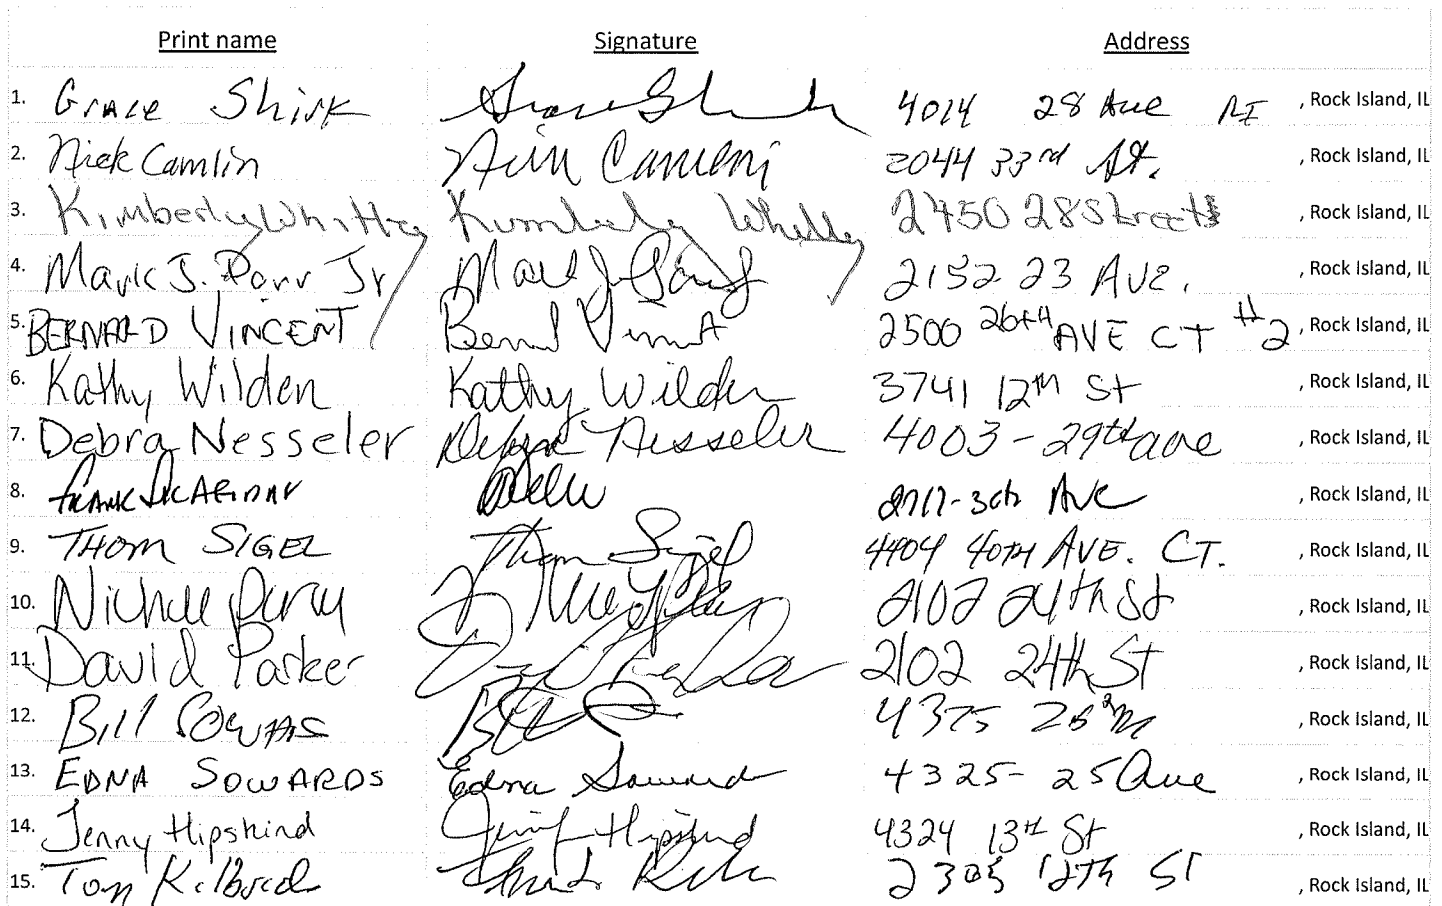 Print name Signature Address
1. Grace Shirk Grace Shirk 4014 28 Ave RI , Rock Island, IL
2. Nick Camlin 2044 33rd St. , Rock Island, IL
3. Kimberly Whitley Kimberly Whitley 2450 28 Street , Rock Island, IL
4. Mark J. Parr Jr 2152 23 Ave. , Rock Island, IL
5. BERNARD VINCENT 2500 26th AVE CT #2 , Rock Island, IL
6. Kathy Wilden Kathy Wilden 3741 12th St , Rock Island, IL
7. Debra Nesseler Debra Nesseler 4003 - 29th ave , Rock Island, IL
8. FRANK Ave , Rock Island, IL
9. THOM SIGEL Thom Sigel 4404 40TH AVE. CT. , Rock Island, IL
10. 2102 24th St , Rock Island, IL
11. David Parker 2102 24th St , Rock Island, IL
12. Bill , Rock Island, IL
13. EDNA SOWARDS Edna Soward 4325 - 25 Ave , Rock Island, IL
14. Jenny Hipskind Hipskind 4324 13th St , Rock Island, IL
15. Tom 2305 12TH ST , Rock Island, IL